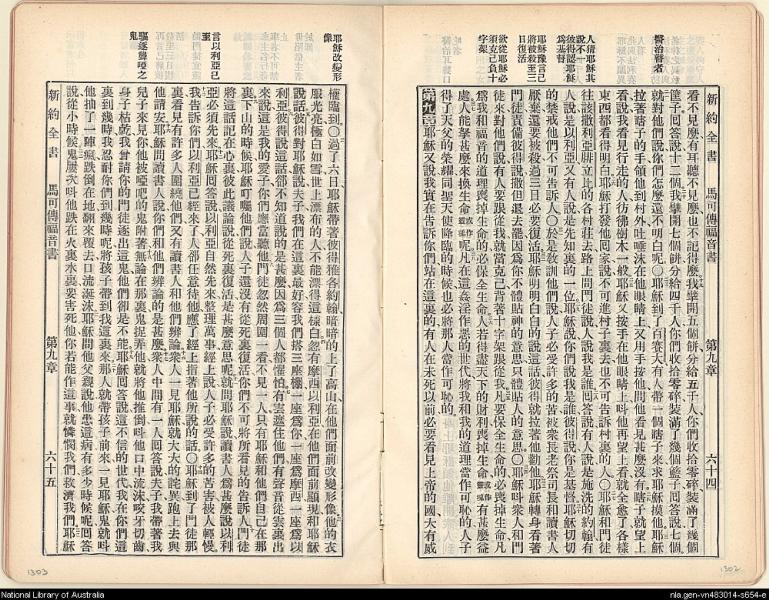 新約全書 馬可傳福音書 第九章 六十四
醫治瞽者
人猜耶穌其說不一
彼得認耶穌爲基督
耶穌豫言己將被殺至三日復活
欲從耶穌必須克己負十字架
看不見麽有耳聽不見麽也不記得麽我擘開五個餅分給五千人你們收拾零碎裝滿了幾個
筐子囘答說十二個我擘開七個餅分給四千人你們收拾零碎裝滿了幾個籃子囘答說七個
就對他們說你們怎麽還不明白呢〇耶穌到了百賽大有人帶一個瞎子來求耶穌摸他耶穌
拉著瞎子的手領他到村外吐唾沫在他眼睛上又用手按他問他看見甚麽沒有瞎子就望上
看說我看見行走的人彷彿樹木一般耶穌又按手在他眼睛上呌他再望上看就全愈了各樣
東西都看得明白耶穌打發他囘家說不可進村子裏去也不可告訴村裏的人〇耶穌和門徒
往該撒利亞腓立比的各村莊去路上問門徒說人說我是誰囘答說有人說是施洗的約翰有
人說是以利亞又有人說是先知裏的一位耶穌說你們說我是誰彼得說你是基督耶穌切切
的禁戒他們不可告訴人〇於是敎訓他們說人子必受許多的苦被衆長老祭司長和讀書人
厭棄還要被殺過三日必要復活耶穌明明白白的說這話彼得就拉著他勸他耶穌轉身看著
門徒責備彼得說撒但退去罷因爲你不體貼神的意思只體貼人的意思〇耶穌呌衆人和門
徒來對他們說有人要跟從我就當克己背著十字架跟從我凡要保全生命的必喪掉生命凡
爲我和福音的道理喪掉生命的必保全生命人若得盡天下的財利喪掉生命或作靈魂有甚麽益
處人能拏甚麽來換生命或作靈魂呢凡在這姦淫作惡的世代將我和我的道理當作可恥的人子
得了天父的榮耀同聖天使降臨的時候也必將那人當作可恥的
第九章耶穌又說我實在告訴你們站在這裏的有人在未死以前必要看見上帝的國大有威
耶穌改變形像
言以利亞已至
驅逐聾啞之鬼
權臨到〇過了六日耶穌帶著彼得雅各約翰暗暗的上了高山在他們面前改變形像他的衣
服光亮極白如雪世上漂布的人不能漂得這樣白忽有摩西以利亞在他們面前顯現和耶穌
說話彼得對耶穌說夫子我們在這裏最好容我們搭三座棚一座爲你一座爲摩西一座爲以
利亞彼得說這話卻不知道說的是甚麽因爲三個人都懼怕有雲遮住他們有聲音從雲裏出
來說這是我的愛子你們應當聽他門徒忽然周圍一看不見一人只有耶穌和他們自己在那
裏下山的時候耶穌囑他們說人子還沒有從死裏復活你們不可將所看見的告訴人門徒
將這話記在心裏彼此議論說從死裏復活是甚麽意思呢就問耶穌說讀書人爲甚麽說以利
亞必須先來耶穌囘答說以利亞自然先來整理萬事經上說人子必受許多的苦害被人輕慢
我告訴你們以利亞已經來了人卻任意待他應了經上指著他所說的話〇耶穌到了門徒那
裏看見有許多人圍繞他們又有讀書人和他們辨論衆人一見耶穌就大大的詫異跑上去與
他請安耶穌問讀書人說你們和他們辨論的是甚麽衆人中間有一人囘答說夫子我帶著我
兒子來見你他被啞吧的鬼附著無論在那裏鬼捉弄他就將他推倒呌他口中流沫咬牙切齒
身子枯乾我曾請你的門徒逐出這鬼他們卻是不能耶穌囘答說這不信的世代我在你們這
裏到幾時我忍耐你們到幾時呢將孩子帶到我這裏來那人就帶孩子前來一見耶穌鬼就呌
他抽了一陣瘋跌倒在地翻來覆去口流涎沫耶穌問他父親說他患這病有多少時候呢囘答
說從小時候鬼屢次呌他跌在火裏水裏要害死他你若能作這事就憐憫我們救濟我們耶穌
新約全書 馬可傳福音書 第九章 六十五
1302
1303
National Library of Australia
nla.gen-vn483014-s654-e